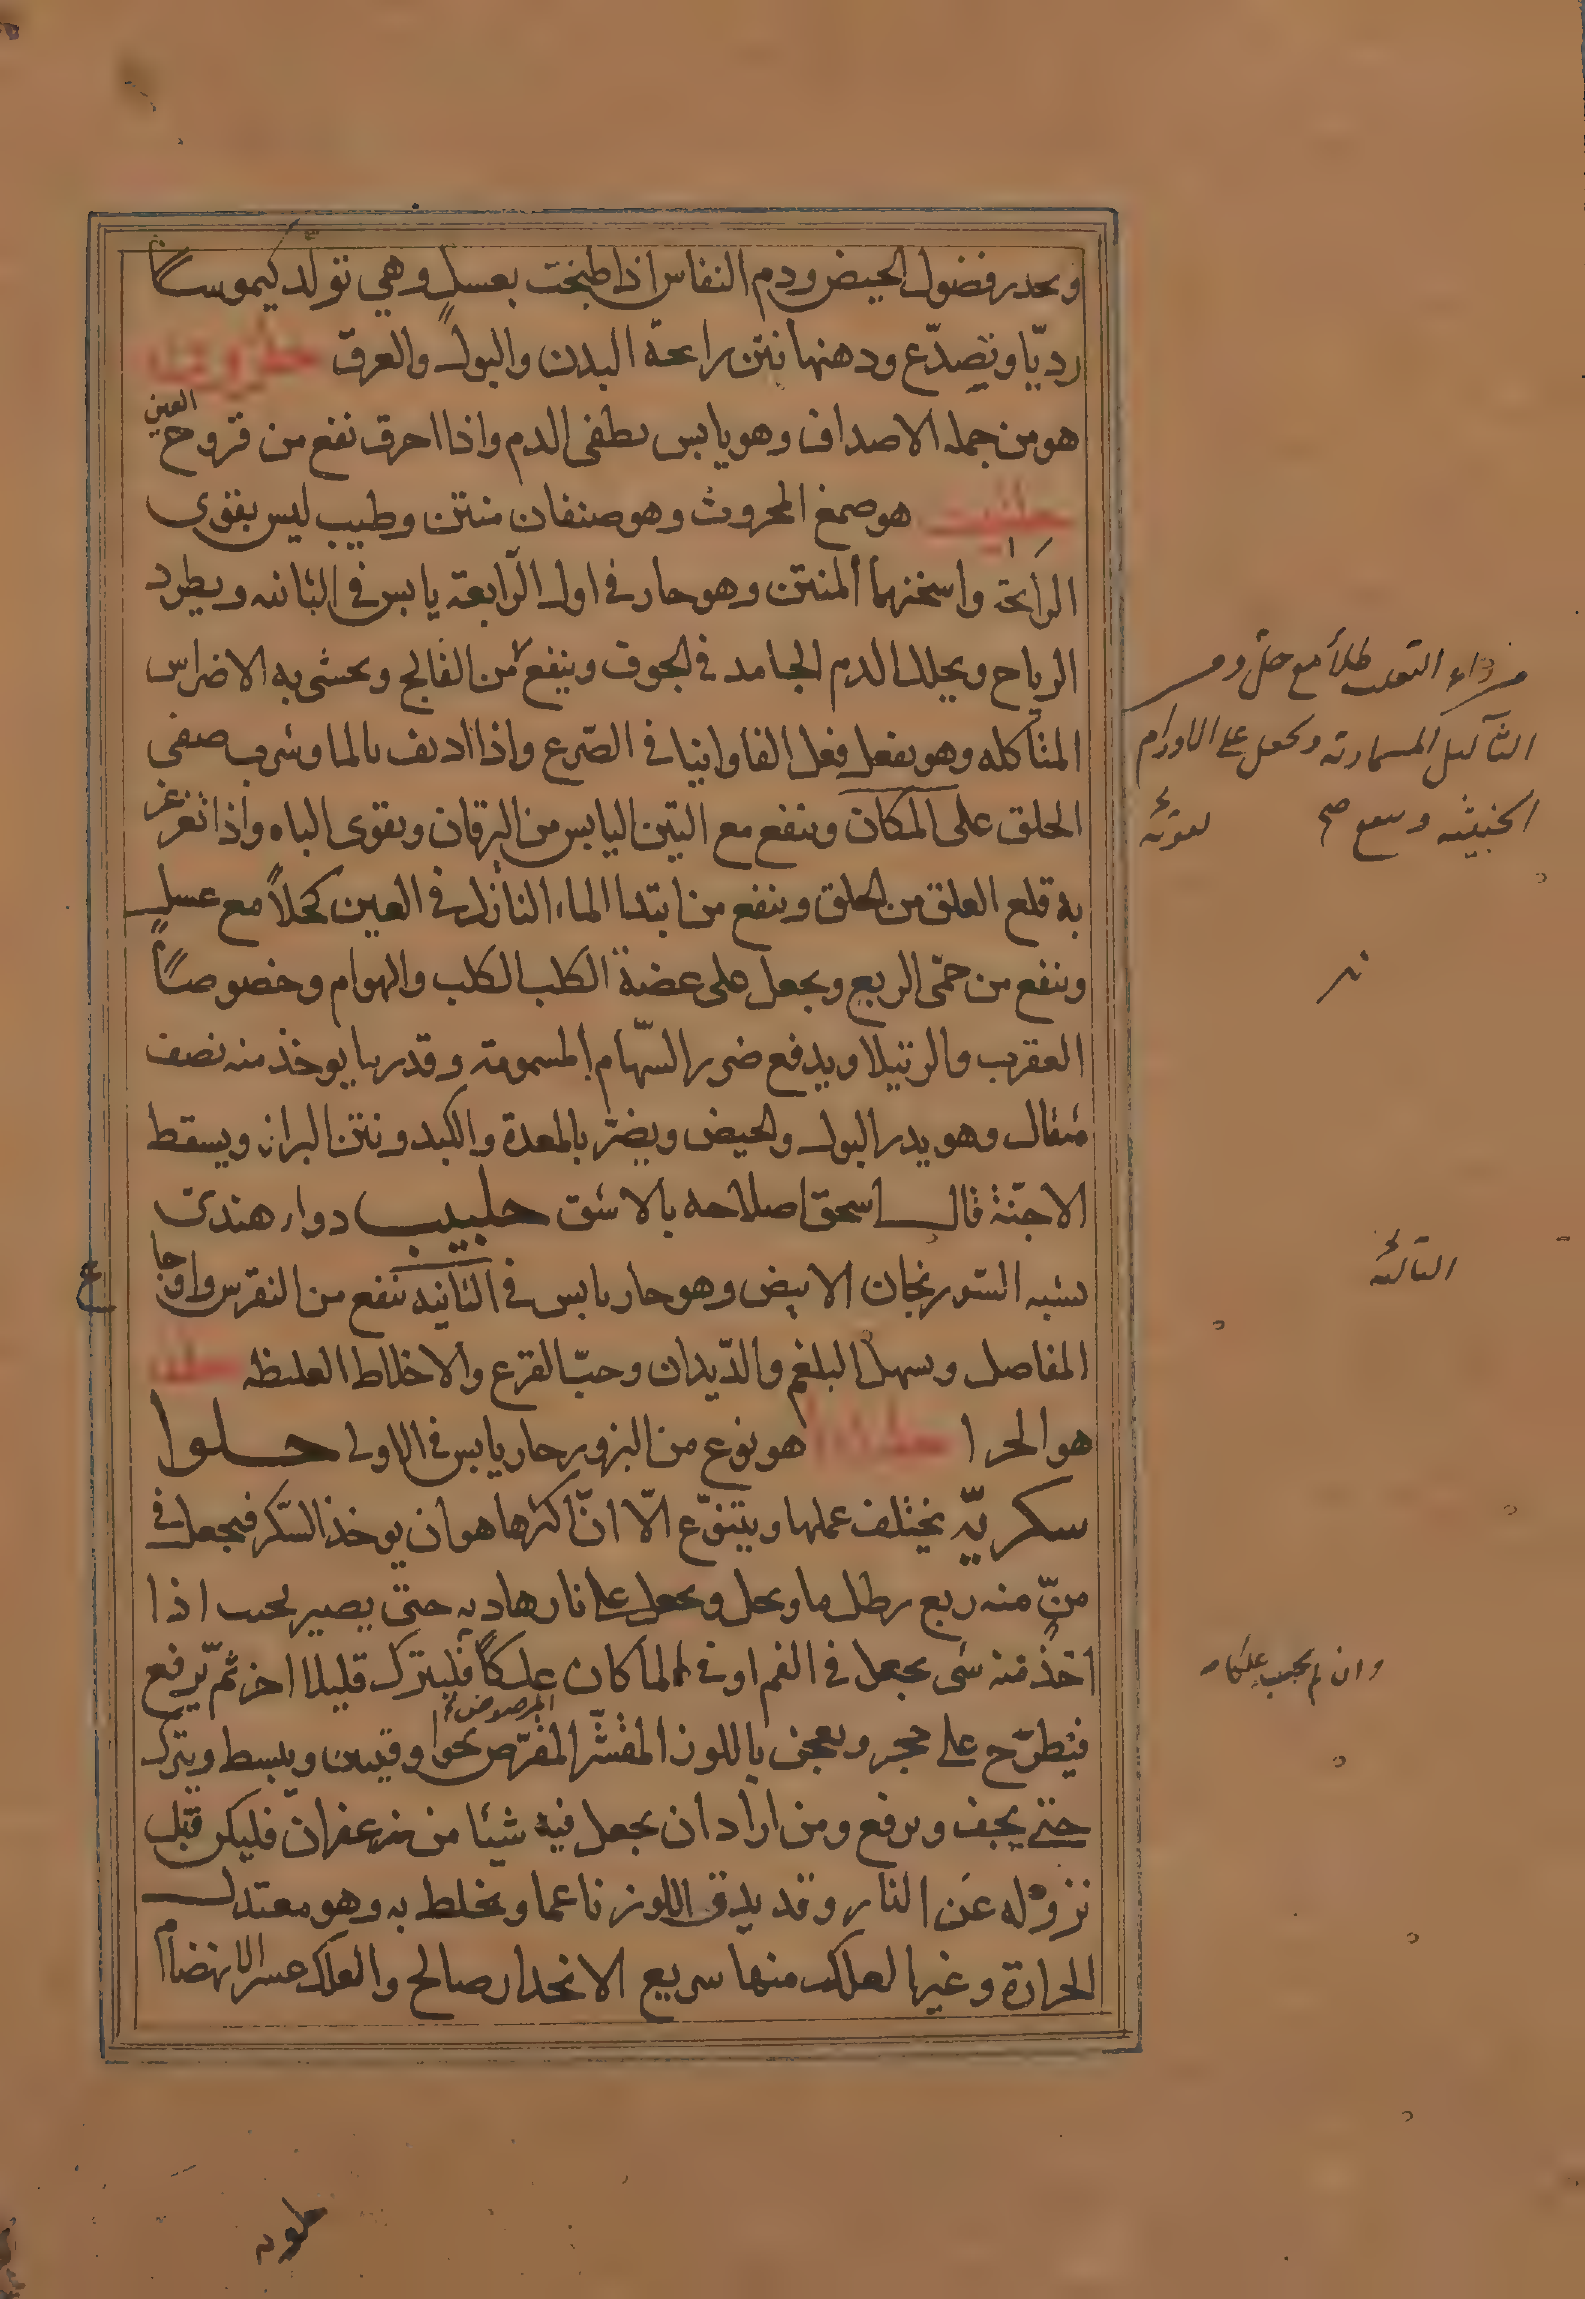 ويحدر فضول الحيض ودم النفاس اذا طبخت بعسل وهي تولّد كيموساً
رديّا ويصدّع ودهنها ينتن رائحة البدن والبول والعرق حلزون
هو من جمله الاصداف وهو يابس يطفى الدم واذا احرق نفع من قروح العين
حلتيت هو صمغ المحروث وهو صنفان منتن وطيب ليس بقوى
الرائحة واسخنهما المنتن وهو حار في اول الرّابعة يابس في الثانيه ويطرد
الرياح ويحلل الدم الجامد في الجوف وينفع من الفالج ويحشى به الاضراس
المتأكله وهو يفعل فعل الفاوانيا في الصّرع واذا اديف بالما وشرب صفى
الحلق على المكان وينفع مع التين اليابس من اليرقان ويقوى الباه واذا تغرغر
به قلع العلق من الحلق وينفع من ابتدا الماء النازل في العين كحلاً مع عسل
وينفع من حمّى الربع ويجعل على عضة الكلب الكلب والهوام وخصوصاً
العقرب والرتيلا ويدفع ضرر السّهام المسمومة وقدر ما يوخذ منه نصف
مثقال وهو يدر البول والحيض ويضرّ بالمعدة والكبد وينتن البراز ويسقط
الاجنّة قال اسحق اصلاحه بالاشق حلبيب دواء هندى
يشبه السّورنجان الابيض وهو حار يابس في الثانيه ينفع من النقرس واوجاع
المفاصل ويسهل البلغم والدّيدان وحبّ القرع والاخلاط الغليظه
هو الحرا هو نوع من البزور حار يابس في الاولى حلوا
سكريّه يختلف عملها ويتنوّع الّا انّ اكثرها هو ان يوخذ السّكر فيجعل في
منّ منه ربع رطل ما ويحل ويجعل على نار هاديه حتى يصير بحيث اذا
اخذ منه شى يجعل في الفم او في الما كان علكاً فليترك قليلا اخر ثمّ يرفع
فيطرّح على حجر ويعجن باللوز المقشّر المقرّص المرضوض نحوا وقيتين ويبسط ويترك
حتى يجف ويرفع ومن اراد ان يجعل فيه شيئا من زعفران فليكن قبل
نزوله عن النار وقد يدق اللوز ناعما ويخلط به وهو معتدل
الحرارة وغير العلك منها سريع الانحدار صالح والعلك عسر الانهضام
داء الثعلب طلأ مع خل و
الثآليل المسمارية ويجعل على الاورام
الخبيثه وينفع صح
لقوته
الثالثه
وان لم يجب علكا